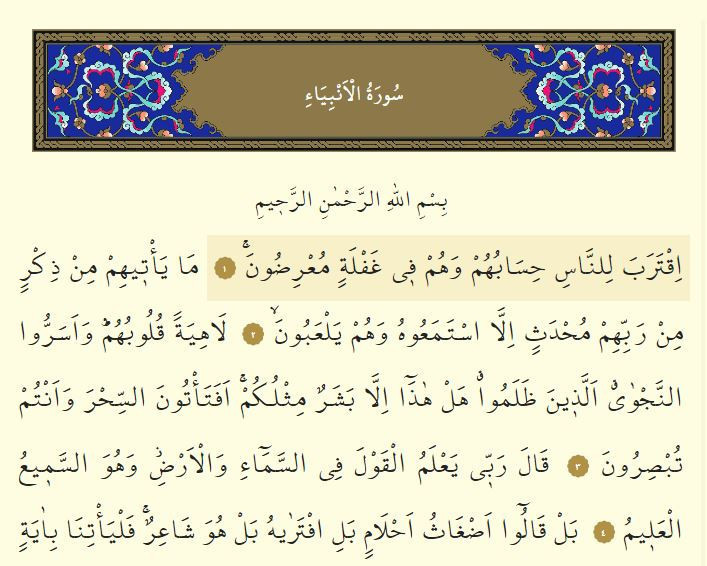 سُورَةُ الْاَنْبِيَاءِ
بِسْمِ اللهِ الرَّحْمٰنِ الرَّح۪يمِ
اِقْتَرَبَ لِلنَّاسِ حِسَابُهُمْ وَهُمْ ف۪ي غَفْلَةٍ مُعْرِضُونَۚ ١ مَا يَأْت۪يهِمْ مِنْ ذِكْرٍ
مِنْ رَبِّهِمْ مُحْدَثٍ اِلَّا اسْتَمَعُوهُ وَهُمْ يَلْعَبُونَۙ ٢ لَاهِيَةً قُلُوبُهُمْۜ وَاَسَرُّوا
النَّجْوٰىۗ اَلَّذ۪ينَ ظَلَمُواۗ هَلْ هٰذَٓا اِلَّا بَشَرٌ مِثْلُكُمْۚ اَفَتَأْتُونَ السِّحْرَ وَاَنْتُمْ
تُبْصِرُونَ ٣ قَالَ رَبّ۪ي يَعْلَمُ الْقَوْلَ فِي السَّمَٓاءِ وَالْاَرْضِۘ وَهُوَ السَّم۪يعُ
الْعَل۪يمُ ٤ بَلْ قَالُٓوا اَضْغَاثُ اَحْلَامٍ بَلِ افْتَرٰيهُ بَلْ هُوَ شَاعِرٌۚ فَلْيَأْتِنَا بِاٰيَةٍ